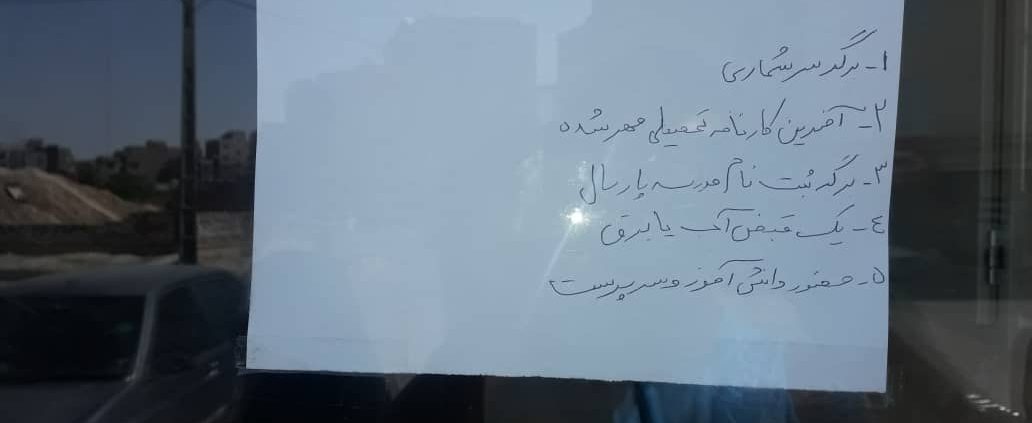 ۱- برگه سرشماری
۲- آخرین کارنامه تحصیلی مهر شده
۳- برگه ثبت نام مدرسه پارسال
۴- یک قبض آب یا برق
۵- حضور دانش آموز و سرپرست